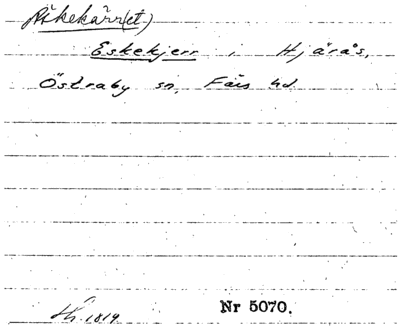 Äskekärr(et)
Eskekjerr i Hjärås,
Östraby sn, Färs hd
Sk. 1819
Nr 5070.